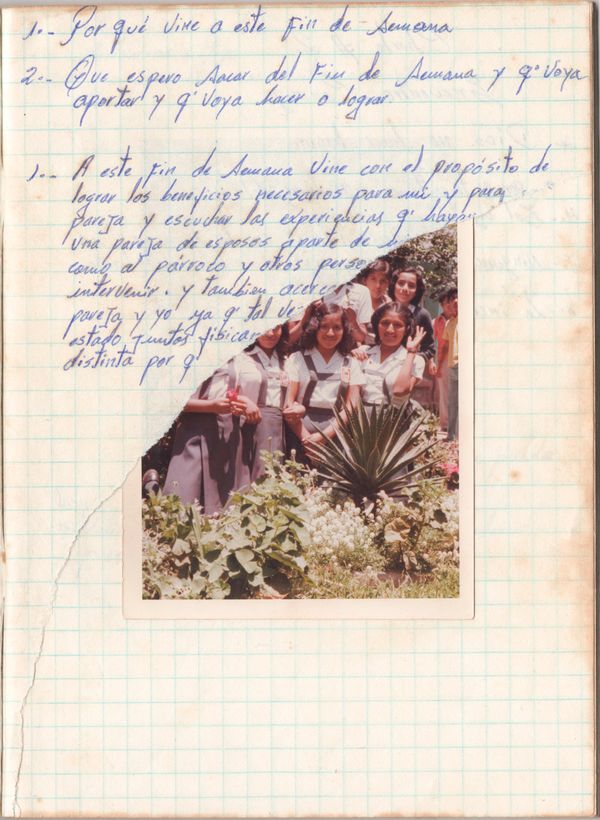 1.- Por qué vine a este fin de semana
2.- Que espero sacar del Fin de Semana y q' voya
aportar y q' voya hacer o lograr.
1.- A este fin de semana vine con el propósito de
lograr los beneficios necesarios para mí y para
pareja y escuchar las experiencias q'
una pareja de esposos aparte de
como al párroco y otros
intervenir. y tambien
pareja y yo ya q' tal
estado juntos
distinta por q'